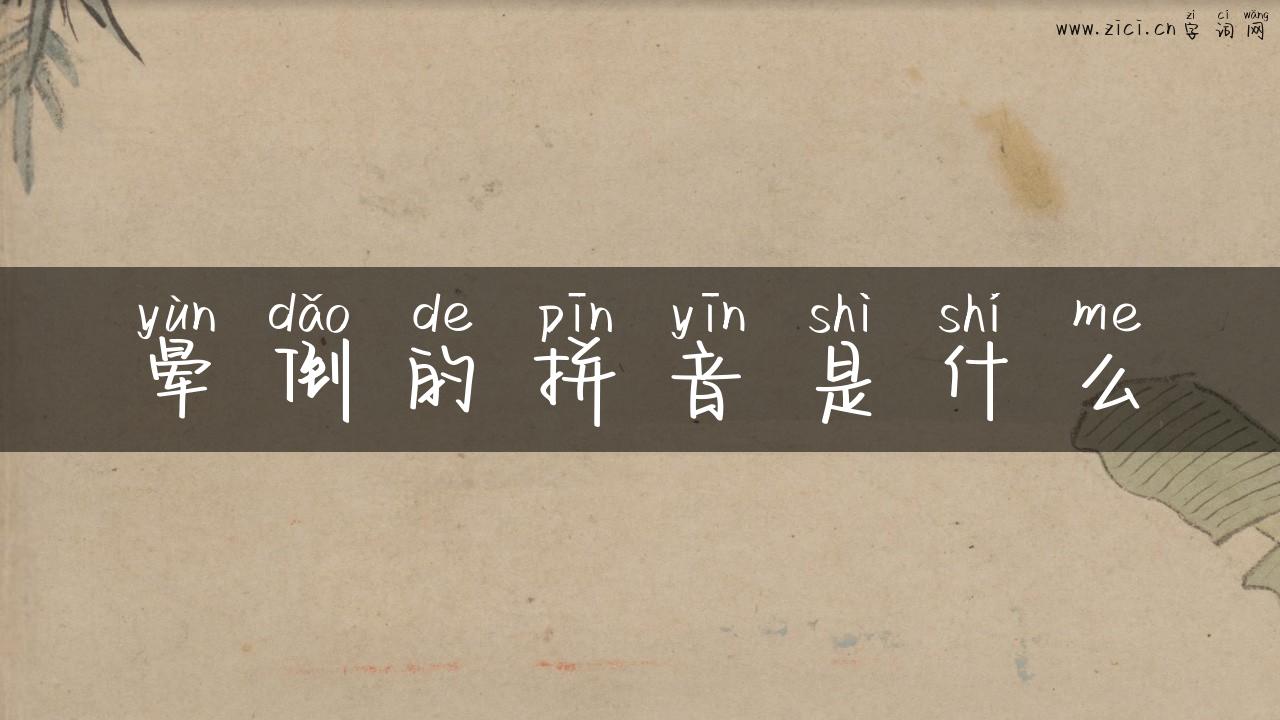 zì cí wǎng
www.zici.cn 字词网
yùn dǎo de pīn yīn shì shí me
晕倒的拼音是什么